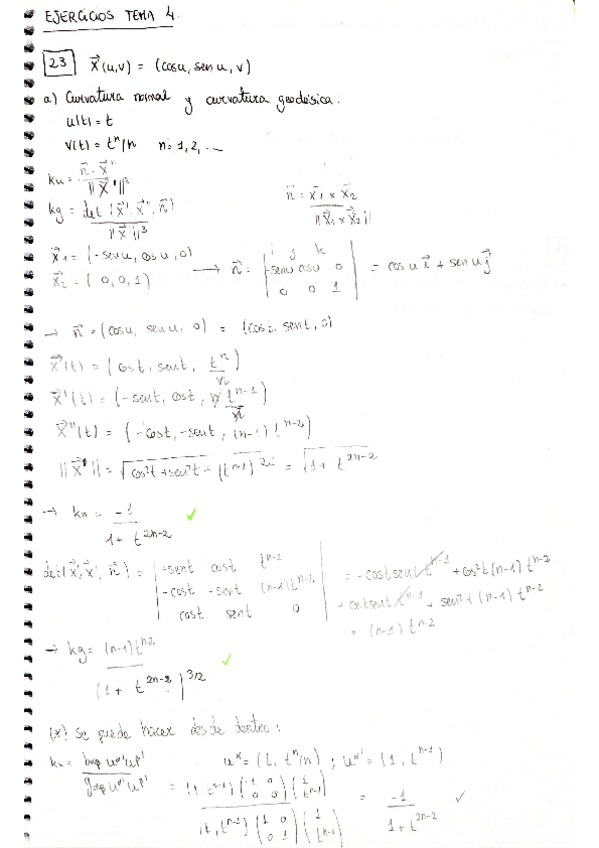 EJERCICIOS TEMA 4.
23 x⃗(u,v) = (cosu, senu, v)
a) Curvatura normal y curvatura geodésica.
u(t) = t
v(t) = tⁿ/n n = 1, 2, ...
kn = n⃗ · x⃗'' / ||x⃗'||²
kg = det(x⃗', x⃗'', n⃗) / ||x⃗'||³ n⃗ = x⃗1 × x⃗2 / ||x⃗1 × x⃗2||
x⃗1 = (-senu, cosu, 0)
x⃗2 = (0, 0, 1) → n⃗ = | i j k ; -senu cosu 0 ; 0 0 1 | = cosu i⃗ + senu j⃗
→ n⃗ = (cosu, senu, 0) = (cost, sent, 0)
x⃗(t) = (cost, sent, tⁿ/n)
x⃗'(t) = (-sent, cost, n tⁿ⁻¹/n)
x⃗''(t) = (-cost, -sent, (n-1) tⁿ⁻²)
||x⃗'|| = √(cos²t + sen²t + (tⁿ⁻¹)²) = √(1 + t²ⁿ⁻²)
→ kn = -1 / (1 + t²ⁿ⁻²) ✓
det(x⃗', x⃗'', n⃗) = | -sent cost tⁿ⁻¹ ; -cost -sent (n-1)tⁿ⁻² ; cost sent 0 | = -cost sent tⁿ⁻¹ + cos²t (n-1) tⁿ⁻²
+ cost sent tⁿ⁻¹ + sen²t (n-1) tⁿ⁻²
= (n-1) tⁿ⁻²
→ kg = (n-1) tⁿ⁻² / (1 + t²ⁿ⁻²)^3/2 ✓
(*) Se puede hacer desde dentro:
kn = bαβ uα' uβ' / gαβ uα' uβ' uα = (t, tⁿ/n) ; uα' = (1, tⁿ⁻¹)
= (1, tⁿ⁻¹) (-1 0 ; 0 0) (1 ; tⁿ⁻¹) / (1, tⁿ⁻¹) (1 0 ; 0 1) (1 ; tⁿ⁻¹) = -1 / (1 + t²ⁿ⁻²) ✓